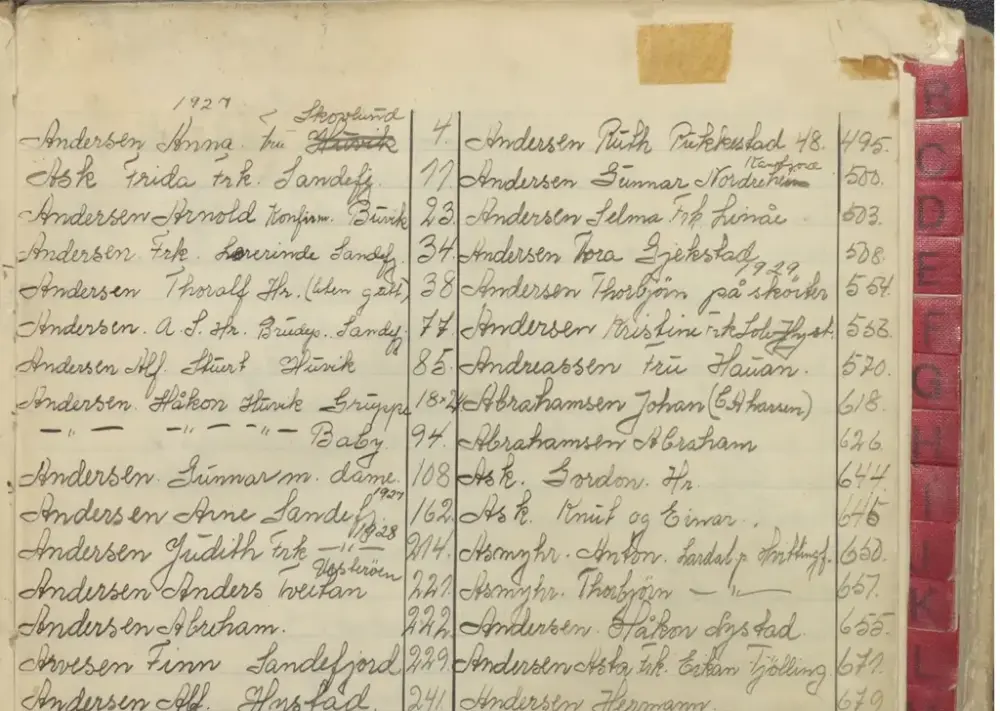 1927
Skovlund
Andersen Anna. fru Huvik 4.
Ask Frida Frk. Sandefj. 11.
Andersen Arnold Konfirm. Buvik 23.
Andersen Frk. Lærerinde Sandefj. 34.
Andersen Thoralf Hr. (liten gutt) 38
Andersen. A. S. Hr. Brudep. Sandefj. 77.
Andersen Alf. Stuert Huvik 85.
Andersen. Håkon Huvik Gruppe 18×24
— " — — " — — " — Baby. 94.
Andersen. Gunnar m. dame. 108
1927
Andersen Arne Sandefj. 162.
1928
Andersen Judith Frk — " — 214.
Vesterøen
Andersen Anders Tveitan 221.
Andersen Abraham. 222.
Arvesen Finn Sandefjord 229.
Andersen Alf. Hystad. 241.
Andersen Ruth Pukkestad 48. 495.
Andersen Gunnar Nordreheim 500.
Andersen Selma Frk Linåe 503.
Andersen Thora Gjekstad 508.
1929.
Andersen Thorbjørn på skøiter 554.
Andersen Kristine Frk Hyst. 553.
Andreassen Fru Hauan. 570.
Abrahamsen Johan (C A Larsen) 618.
Abrahamsen Abraham 626.
Ask. Gordon. Hr. 644
Ask. Knut og Einar. 645
Asmyhr. Anton. Lardal p. 650.
Asmyhr. Thorbjørn — " — 651.
Andersen. Håkon Nystad 655.
Andersen Asta Frk. Tjølling 671.
Andersen Hermann. 679
B
C
D
E
F
G
H
I
J
K
L